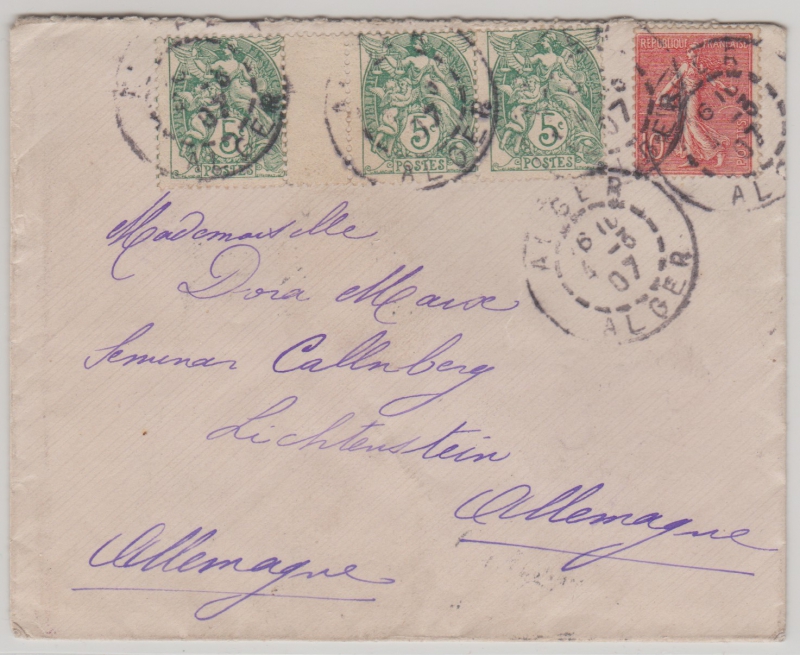 5c 5c 5c
POSTES POSTES POSTES
REPUBLIQUE FRANÇAISE
ALGER
ALGER
ALGER
ALGER
ALGER
07
Mademoiselle
Dora Marx
Seminar Callnberg
Lichtenstein
Allemagne
Allemagne